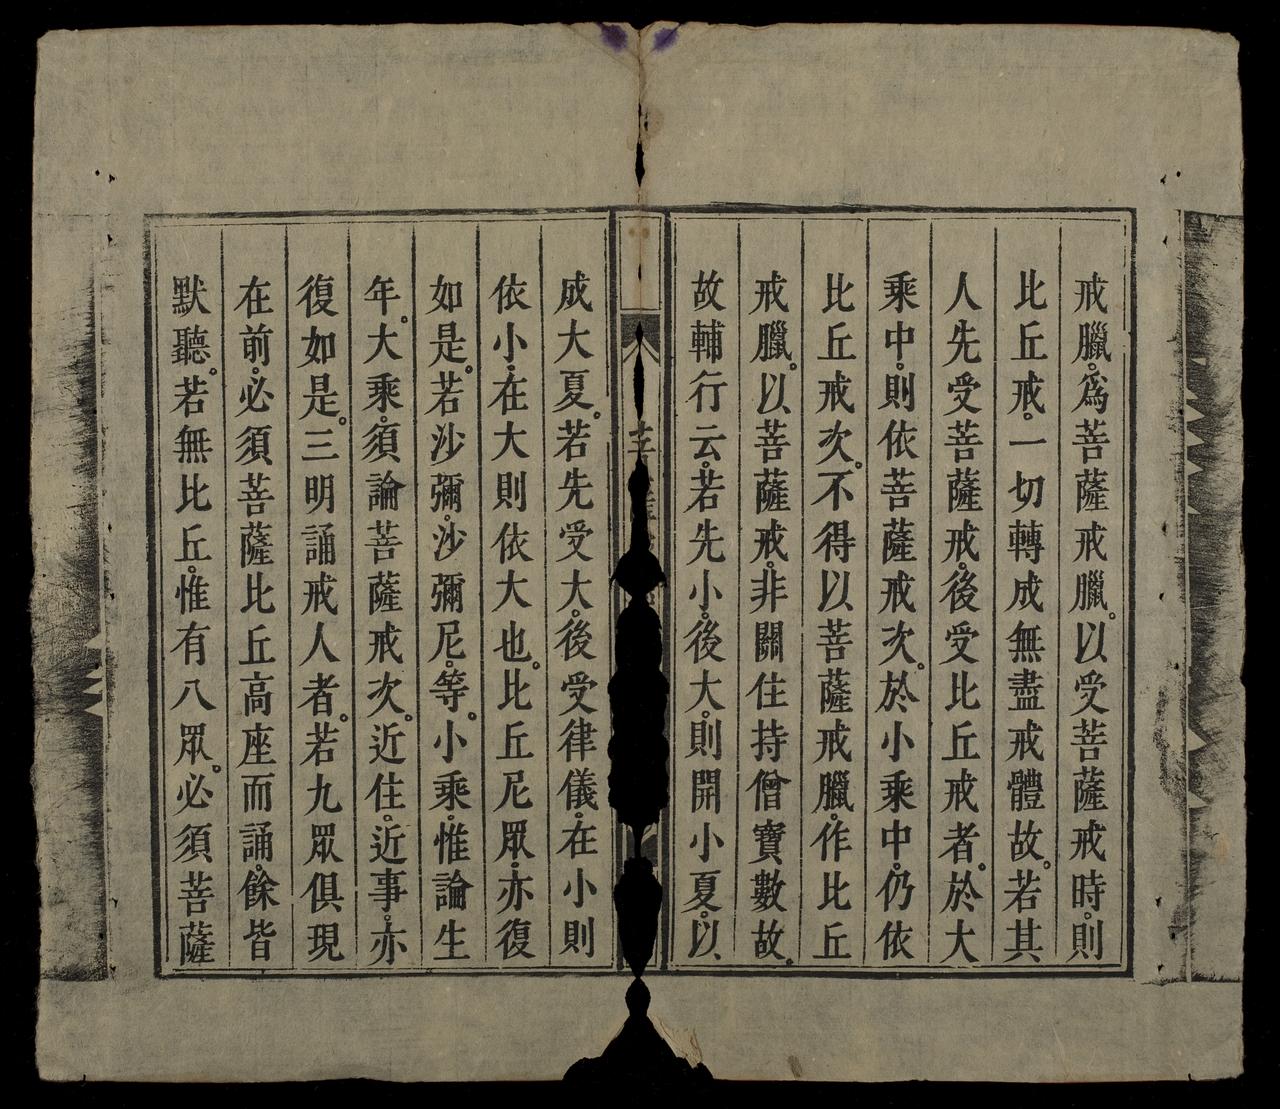 戒臘。爲菩薩戒臘。以受菩薩戒時。則
比丘戒。一切轉成無盡戒體故。若其
人先受菩薩戒。後受比丘戒者。於大
乘中。則依菩薩戒次。於小乘中。仍依
比丘戒次。不得以菩薩戒臘。作比丘
戒臘。以菩薩戒。非關住持僧寶數故。
故輔行云。若先小。後大。則開小夏。以
成大夏。若先受大。後受律儀。在小則
依小。在大則依大也。比丘尼眾。亦復
如是。若沙彌。沙彌尼。等。小乘。惟論生
年。大乘。須論菩薩戒次。近住。近事。亦
復如是。三明誦戒人者。若九眾俱現
在前。必須菩薩比丘高座而誦。餘皆
默聽。若無比丘。惟有八眾。必須菩薩